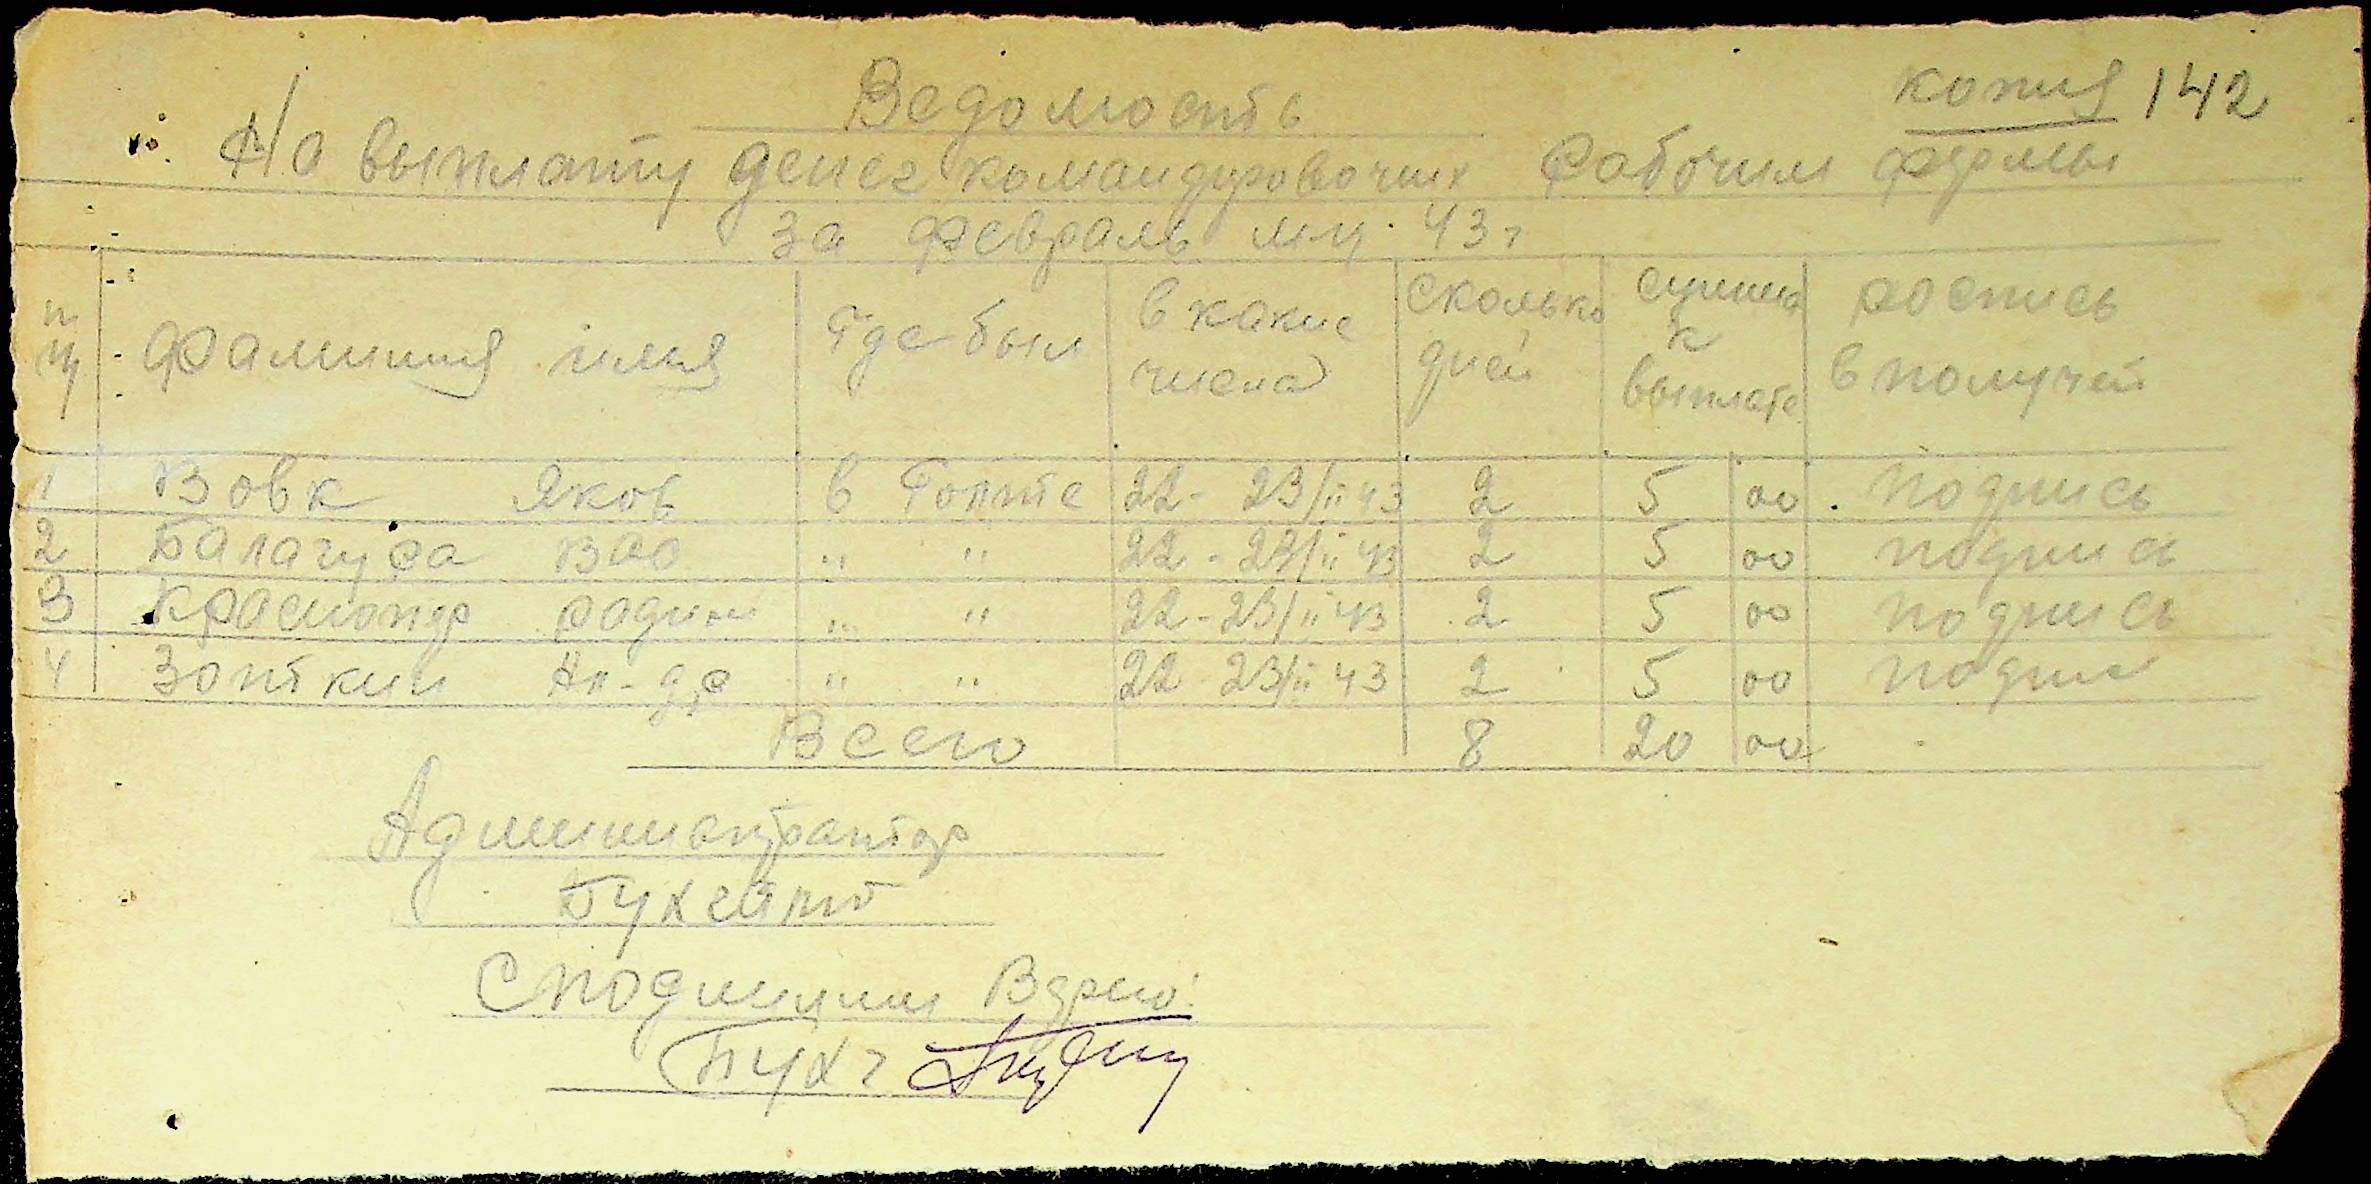 Ведомость копия 142
На выплату денег командировочних рабочим фермы
за февраль м-ц. 43 г
пп Фамилия имя где был в какие числа сколько дней сумма к выплате роспись в получей
1 Вовк Яков в Гопте 22- 23/II 43 2 5 00 подпись
2 Балагура Вас " " 22 - 23/II 43 2 5 00 подпись
3 Краснопор " " 22 - 23/II 43 2 5 00 подпись
4 Зоткин " " 22 23/II 43 2 5 00 подпис
Всего 8 20 00
Администратор
Бухгалт
С подлинним Верно:
Бухг